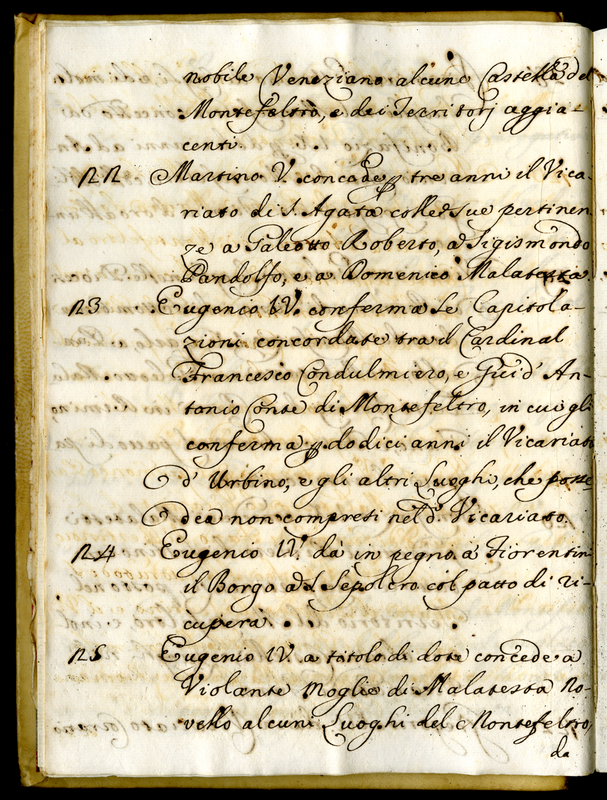 nobile Veneziano alcune Castella del
Montefeltro, e dei Territorj aggia-
centi.
122 Martino V. concede p tre anni il Vica-
riato di S. Agata colle sue pertinen
ze a Galeotto Roberto, a Sigismondo
Pandolfo, e a Domenico Malatesta
123 Eugenio IV. conferma le Capitola-
zioni concordate tra il Cardinal
Francesco Condulmiero, e Guid' An-
tonio Conte di Montefeltro, in cui gli
conferma p dodici anni il Vicariato
d' Urbino, e gli altri Luoghi, che posse
dea non compresi nel d. Vicariato.
124 Eugenio IV. dà in pegno a' Fiorentini
il Borgo a S. Sepolcro col patto di ri-
cupera.
125 Eugenio IV. a titolo di dote concede a
Violante Moglie di Malatesta No-
vello alcuni Luoghi del Montefeltro,
da